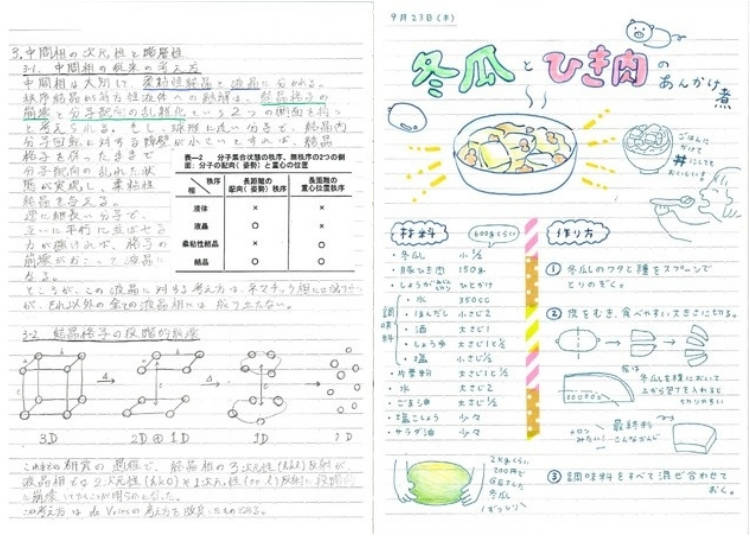 3. 中間相の次元性と階層性
3-1. 中間相の従来の考え方
中間相は大別して、柔粘性結晶と液晶に分かれる。
秩序結晶が等方性液体への融解は、結晶格子の
崩壊と分子配向の乱雑化という2つの側面を持つ
と考えられる。もし、球形に近い分子で、結晶内
分子回転に対する障壁が小さいとすれば、結晶
格子を保ったままで
分子配向の乱れた状
態が実現し、柔粘性
結晶を与える。
逆に細長い分子で、
互いに平行に並ばせる
力が強ければ、格子の
崩壊がおこって液晶に
なる。
ところが、この液晶に対する考え方は、ネマチック相には
が、それ以外の全ての液晶相には成り立たない。
表―2 分子集合状態の秩序、無秩序の2つの側
面:分子の配向(姿勢)と重心の位置
秩序 相 長距離の配向(姿勢)秩序 長距離の重心位置秩序
液体 × ×
液晶 ○ ×
柔粘性結晶 × ○
結晶 ○ ○
3-2 結晶格子の段階的融解
3D 2D⊕1D 1D
これまでの研究の過程で、結晶相の3次元性(hkl)反射が、
液晶相では2次元性(hk0)や1次元性(00l)反射に段階的
に崩壊していくことが明らかとなった。
この考え方は de Vriesの考え方を改良したものである。
9月23日(木)
冬瓜とひき肉の
あんかけ煮
ごはんに
かけて
丼にしても
おいしい!!
材料
600gくらい
・冬瓜 小1/2
・豚ひき肉 150g
・しょうがみじん切り ひとかけ
調味料
・水 350cc
・ほんだし 小さじ2
・酒 大さじ1
・しょうゆ 大さじ1と1/2
・塩 小さじ1/2
・片栗粉 大さじ1と1/2
・水 大さじ2
・ごま油 小さじ2
・塩こしょう 少々
・サラダ油 少々
2kgくらい
200円で
GETした
冬瓜
ずっしり
作り方
① 冬瓜のワタと種をスプーンで
とりのぞく。
② 皮をむき、食べやすい大きさに切る。
皮は
冬瓜を横において
上から包丁を入れると
切りやすい
メロン
みたい!
最終的に
こんなかんじ
③ 調味料をすべて混ぜ合わせて
おく。